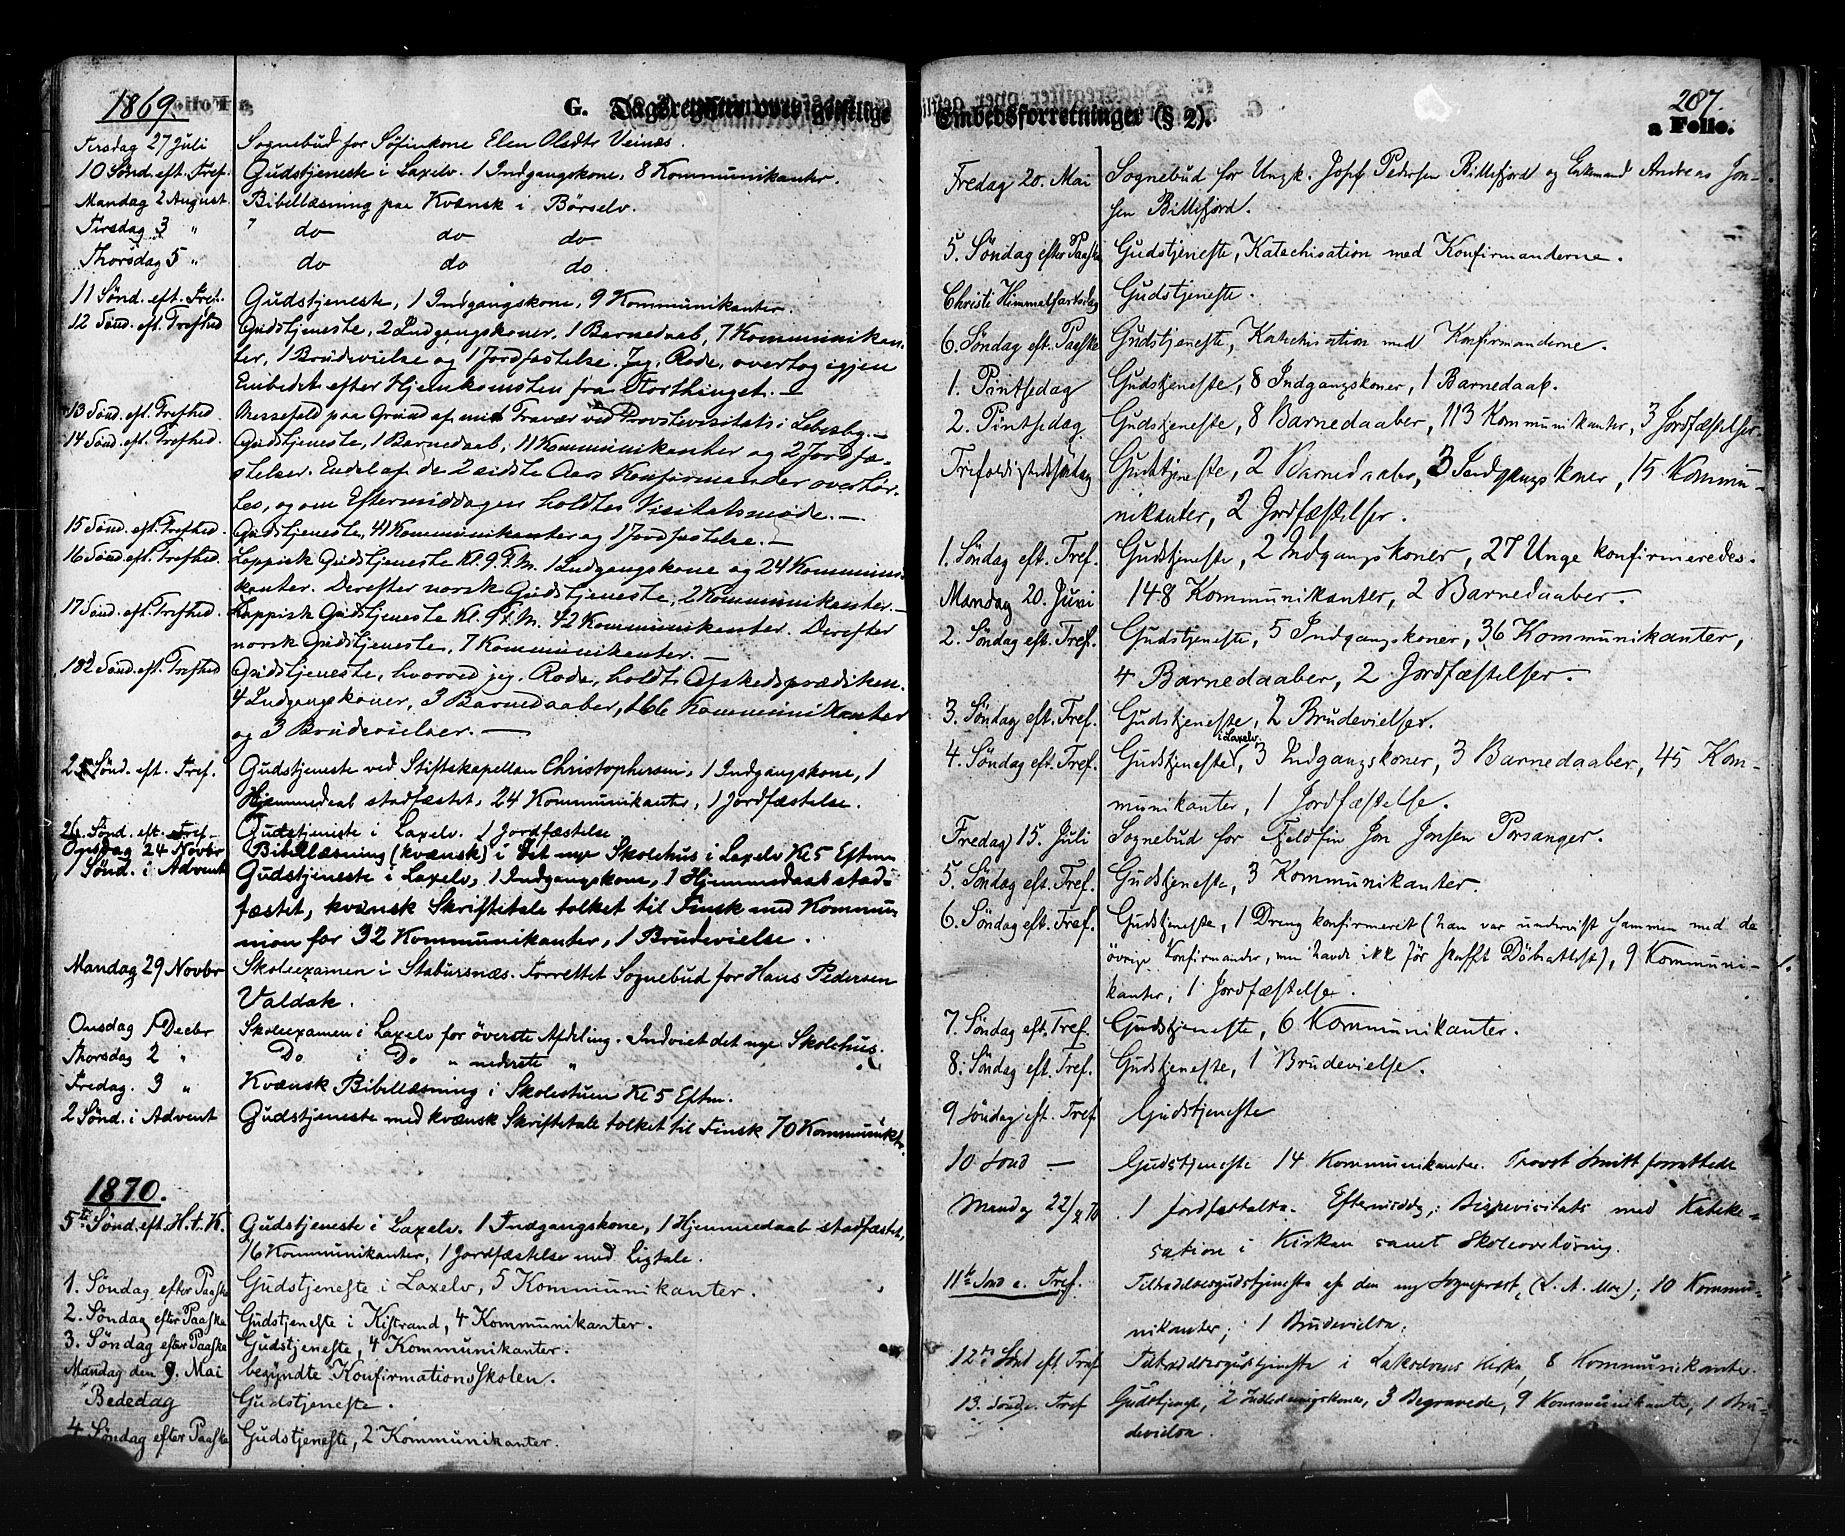 1869.
G. Dagsregister over geistlige
Tirsdag 27 Juli Sognebud for Söfinkone Elen Olsdtr Veinæs.
10 Sönd. eft. Tref. Gudstjeneste i Laxelv. 1 Indgangskone, 8 Kommunikanter.
Mandag 2 August. Bibellæsning paa Kvænsk i Börselv.
Tirsdag 3 " do do do
Thorsdag 5 " do do do
11 Sönd. eft. Tref. Gudstjeneste, 1 Indgangskone, 9 Kommunikanter.
12 Sönd. eft. Trefhed Gudstjeneste, 2 Indgangskoner, 1 Barnedaab, 7 Kommunikan-
ter, 1 Brudevielse og 1 Jordfæstelse. Jeg, Rode, overtog igjen
Embedet efter Hjemkomsten fra Storthinget. —
13 Sönd. eft. Trefhed. Messefald paa Grund af mit Fravær ved Provstevisitats i Lebesby. —
14 Sönd. eft. Trefhed. Gudstjeneste, 1 Barnedaab, 11 Kommunikanter og 2 Jordfæ-
stelser. Endel af de 2 sidste Aars Konfirmander overhör-
tes, og om Eftermiddagen holdtes Visitatsmöde. —
15 Sönd. eft. Trefhed. Gudstjeneste, 41 Kommunikanter og 1 Jordfæstelse. —
16 Sönd. eft. Trefhed. Lappisk Gudstjeneste Kl. 9 F.M. 1 Indgangskone og 24 Kommuni-
kanter. Derefter norsk Gudstjeneste, 2 Kommunikanter. —
17 Sönd. eft. Trefhed. Lappisk Gudstjeneste Kl. 9 F.M. 42 Kommunikanter. Derefter
norsk Gudstjeneste, 7 Kommunikanter. —
18d Sönd. eft. Trefhed Gudstjeneste, hvorved jeg, Rode, holdt Afskedsprædiken.
4 Indgangskoner, 3 Barnedaaber, 166 Kommunikanter
og 3 Brudevielser. —
Sönd. eft. Tref. Gudstjeneste ved Stiftskapellan Christophersen, 1 Indgangskone, 1
Hjemmedaab stadfæstet, 24 Kommunikanter, 1 Jordfæstelse.
26. Sönd. eft. Tref. Gudstjeneste i Laxelv. 1 Jordfæstelse
Onsdag 24 Novbr Bibellæsning (kvænsk) i det nye Skolehus i Laxelv Kl 5 Eftm
1 Sönd. i Advent Gudstjeneste i Laxelv, 1 Indgangskone, 1 Hjemmedaab stad-
fæstet, kvænsk Skriftetale tolket til Finsk med Kommu
nion for 32 Kommunikanter, 1 Brudevielse.
Mandag 29 Novbr Skoleexamen i Stabursnæs. Forrettet Sognebud for Hans Pedersen
Valdak.
Onsdag 1 Decbr Skoleexamen i Laxelv for överste Afdeling. Indviet det nye Skolehus.
Thorsdag 2 " Do i Do " nederste "
Fredag. 3 " Kvænsk Bibellæsning i Skolestuen Kl 5 Eftm.
2 Sönd. i Advent Gudstjeneste med kvænsk Skriftetale tolket til Finsk 70 Kommunikt.
1870.
5te Sönd. eft. H. t. K. Gudstjeneste i Laxelv. 1 Indgangskone, 1 Hjemmedaab stadfæstet,
16 Kommunikanter, 1 Jordfæstelse med Ligtale.
1. Söndag efter Paaske Gudstjeneste i Laxelv, 5 Kommunikanter.
2. Söndag efter Paaske Gudstjeneste i Kistrand, 4 Kommunikanter.
3. Söndag efter Paaske Gudstjeneste, 4 Kommunikanter.
Mandag den 9. Mai begyndte Konfirmationsskolen.
Bededag Gudstjeneste.
4. Söndag efter Paaske Gudstjeneste, 2 Kommunikanter.
Embedsforretninger (§ 2).
287.
a Folio.
Fredag 20. Mai Sognebud for Ungk. Josef Pedersen Billefjord og Enkemand Andreas Jon-
sen Billefjord.
5. Söndag efter Paaske Gudstjeneste, Katechisation med Konfirmanderne.
Christi Himmelfartsdag Gudstjeneste.
6. Söndag eft. Paaske Gudstjeneste, Katechisation med Konfirmanderne.
1. Pintsedag Gudstjeneste, 8 Indgangskoner, 1 Barnedaab.
2. Pintsedag Gudstjeneste, 8 Barnedaaber, 113 Kommunikanter, 3 Jordfæstelser.
Trefoldighedssöndag Gudstjeneste, 2 Barnedaaber, 3 Indgangskoner, 15 Kommu-
nikanter, 2 Jordfæstelser.
1. Söndag eft. Tref. Gudstjeneste, 2 Indgangskoner, 27 Unge konfirmeredes.
Mandag 20. Juni 148 Kommunikanter, 2 Barnedaaber.
2. Söndag eft. Tref. Gudstjeneste, 5 Indgangskoner, 36 Kommunikanter,
4 Barnedaaber, 2 Jordfæstelser.
3. Söndag eft. Tref. Gudstjeneste, 2 Brudevielser.
4. Söndag eft. Tref. Gudstjeneste i Laxelv, 3 Indgangskoner, 3 Barnedaaber, 45 Kom-
munikanter, 1 Jordfæstelse.
Fredag 15. Juli Sognebud for Fjeldfin Jon Jonsen Porsanger.
5. Söndag eft. Tref. Gudstjeneste, 3 Kommunikanter.
6. Söndag eft. Tref. Gudstjeneste, 1 Dreng konfirmeret (han var undervist sammen med de
övrige Konfirmander, men havde ikke för skafft Döbsattest), 9 Kommuni-
kanter, 1 Jordfæstelse.
7. Söndag eft. Tref. Gudstjeneste, 6 Kommunikanter.
8. Söndag eft. Tref. Gudstjeneste, 1 Brudevielse.
9 Söndag eft. Tref Gudstjeneste
10 Sönd — Gudstjeneste 14 Kommunikanter. Provst Smitt forrettede
Mandag 22/8 70 1 Jordfæstelse. Eftermiddag: Bispevisitats med Kateke-
sation i Kirken samt Skoleoverhöring.
11te Sönd e. Tref. Tiltrædelsesgudstjeneste af den ny Sognepræst, (L. A. Moe); 10 Kommu-
nikanter; 1 Brudevielse.
12te Sönd eft. Tref Tiltrædelsesgudstjeneste i Lakselvens Kirke, 8 Kommunikanter
13. Sönd e. Tref Gudstjeneste, 2 Indledningskoner, 3 Begravede, 9 Kommunikanter, 1 Bru-
devielse.